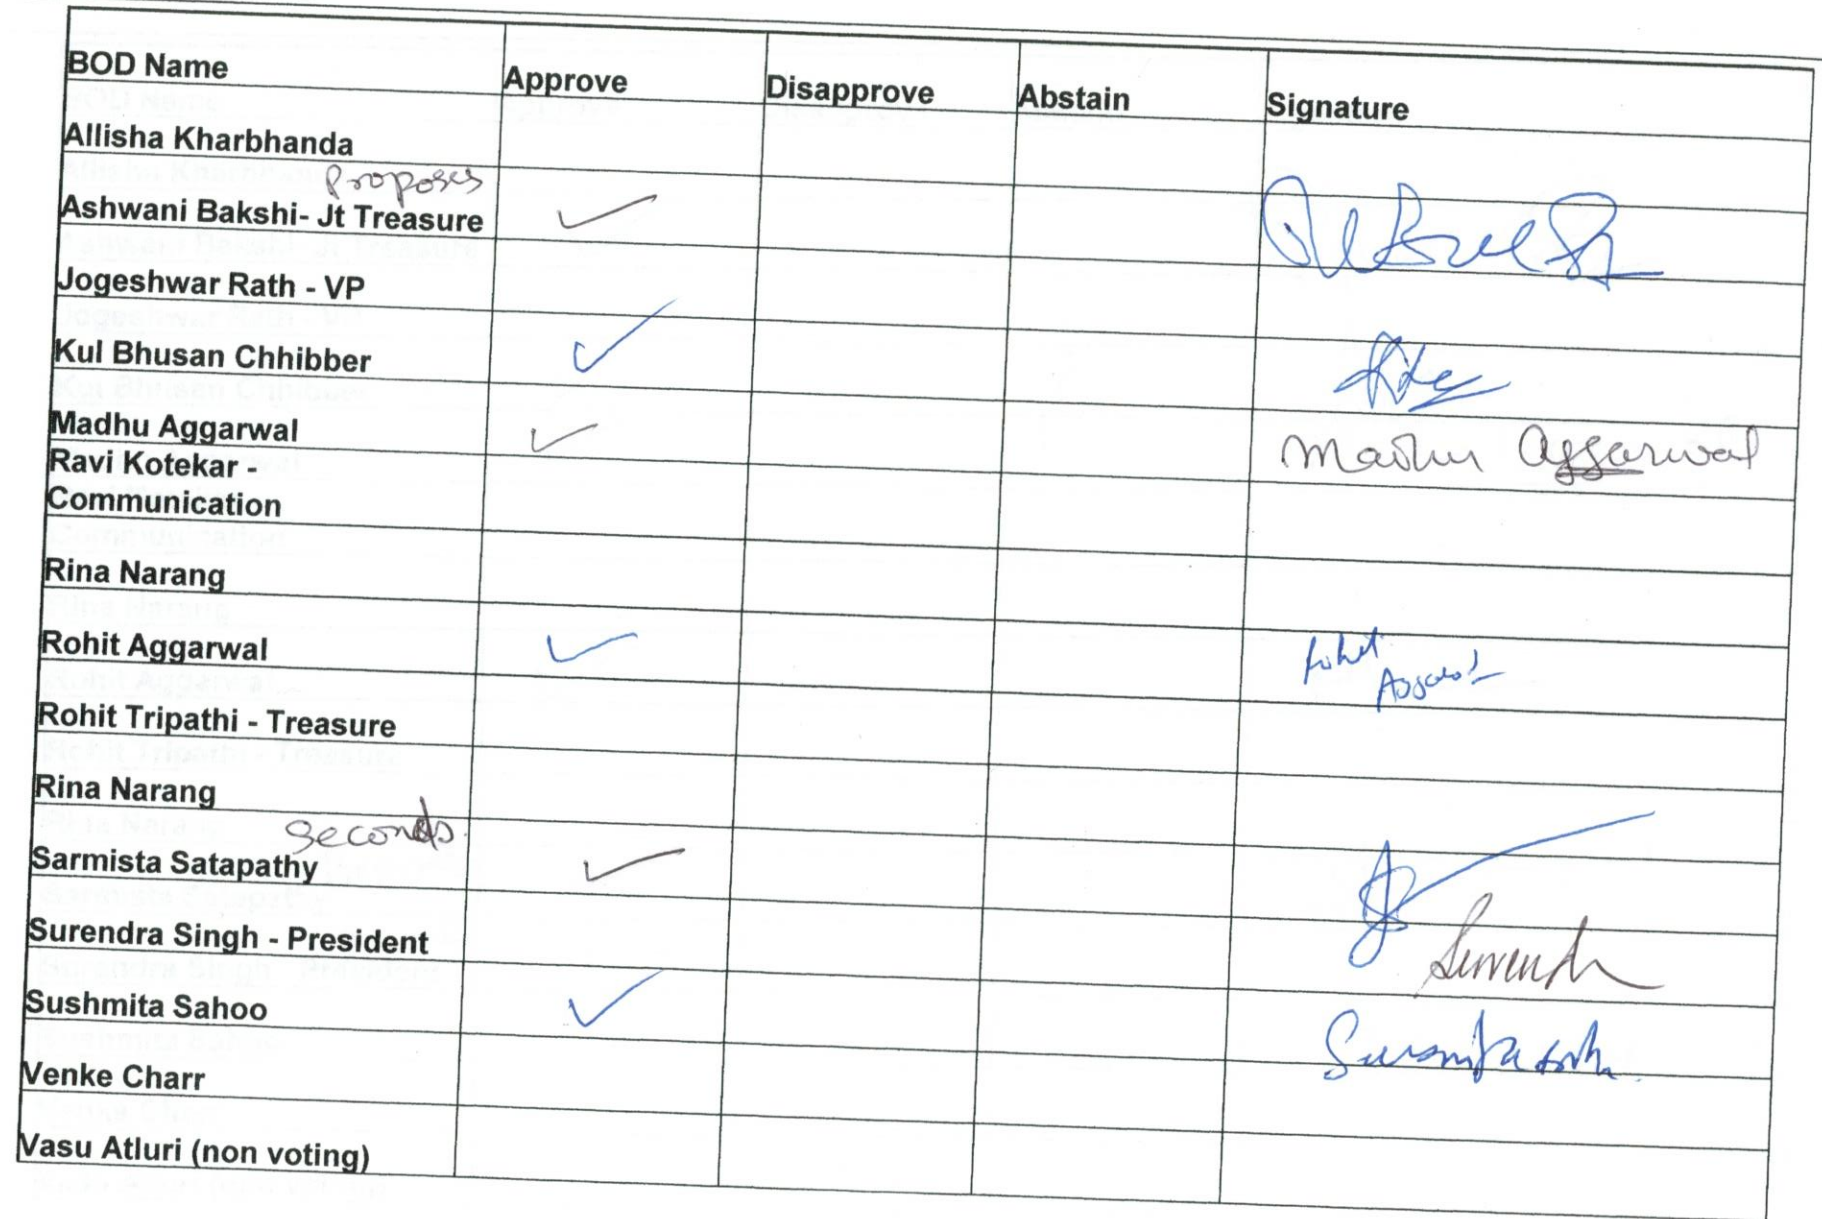 BOD Name Approve Disapprove Abstain Signature
Allisha Kharbhanda
proposes
Ashwani Bakshi- Jt Treasure ✓
Jogeshwar Rath - VP
Kul Bhusan Chhibber ✓
Madhu Aggarwal ✓ Madhu Aggarwal
Ravi Kotekar -
Communication
Rina Narang
Rohit Aggarwal ✓ Rohit
Aggarwal
Rohit Tripathi - Treasure
Rina Narang
seconds.
Sarmista Satapathy ✓
Surendra Singh - President Surendra
Sushmita Sahoo ✓
Venke Charr
Vasu Atluri (non voting)